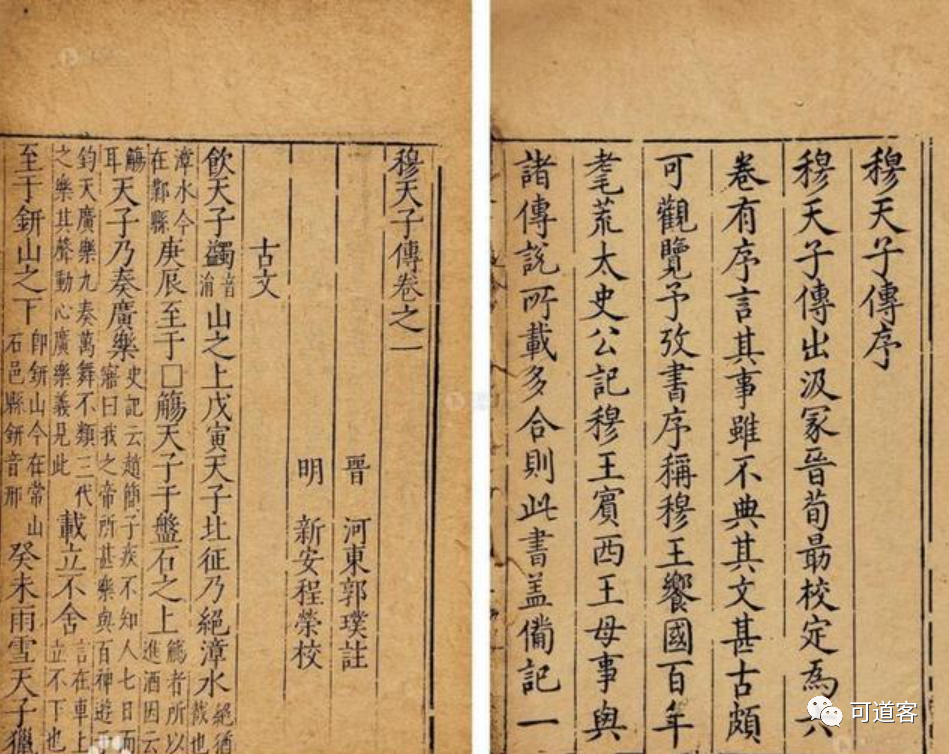 穆天子傳序
穆天子傳出汲冢晉荀勗校定為六
卷有序言其事雖不典其文甚古頗
可觀覽予攷書序稱穆王饗國百年
耄荒太史公記穆王賓西王母事與
諸傳說所載多合則此書盖備記一
穆天子傳卷之一
晉 河東郭璞註
明 新安程榮校
古文
飲天子蠲音涓山之上戊寅天子北征乃絕漳水絕猶截也
漳水今在鄴縣庚辰至于□觴天子于盤石之上觴者所以進酒因云
觴耳天子乃奏廣樂史記云趙簡子疾不知人七日而寤曰我之帝所甚樂與百神遊
鈞天廣樂九奏萬舞不類三代之樂其聲動心廣樂義見此載立不舍言在車上立不下也
至于鈃山之下即鈃山今在常山石邑縣鈃音邢癸未雨雪天子獵
可道客